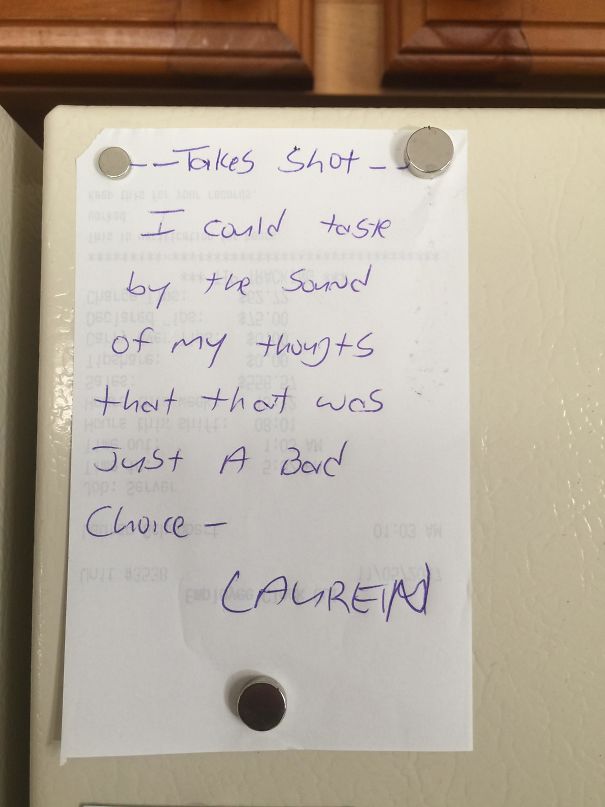 --Takes Shot--
I could taste
by the Sound
of my thougts
that that was
Just A Bad
Choice-
LAUREN